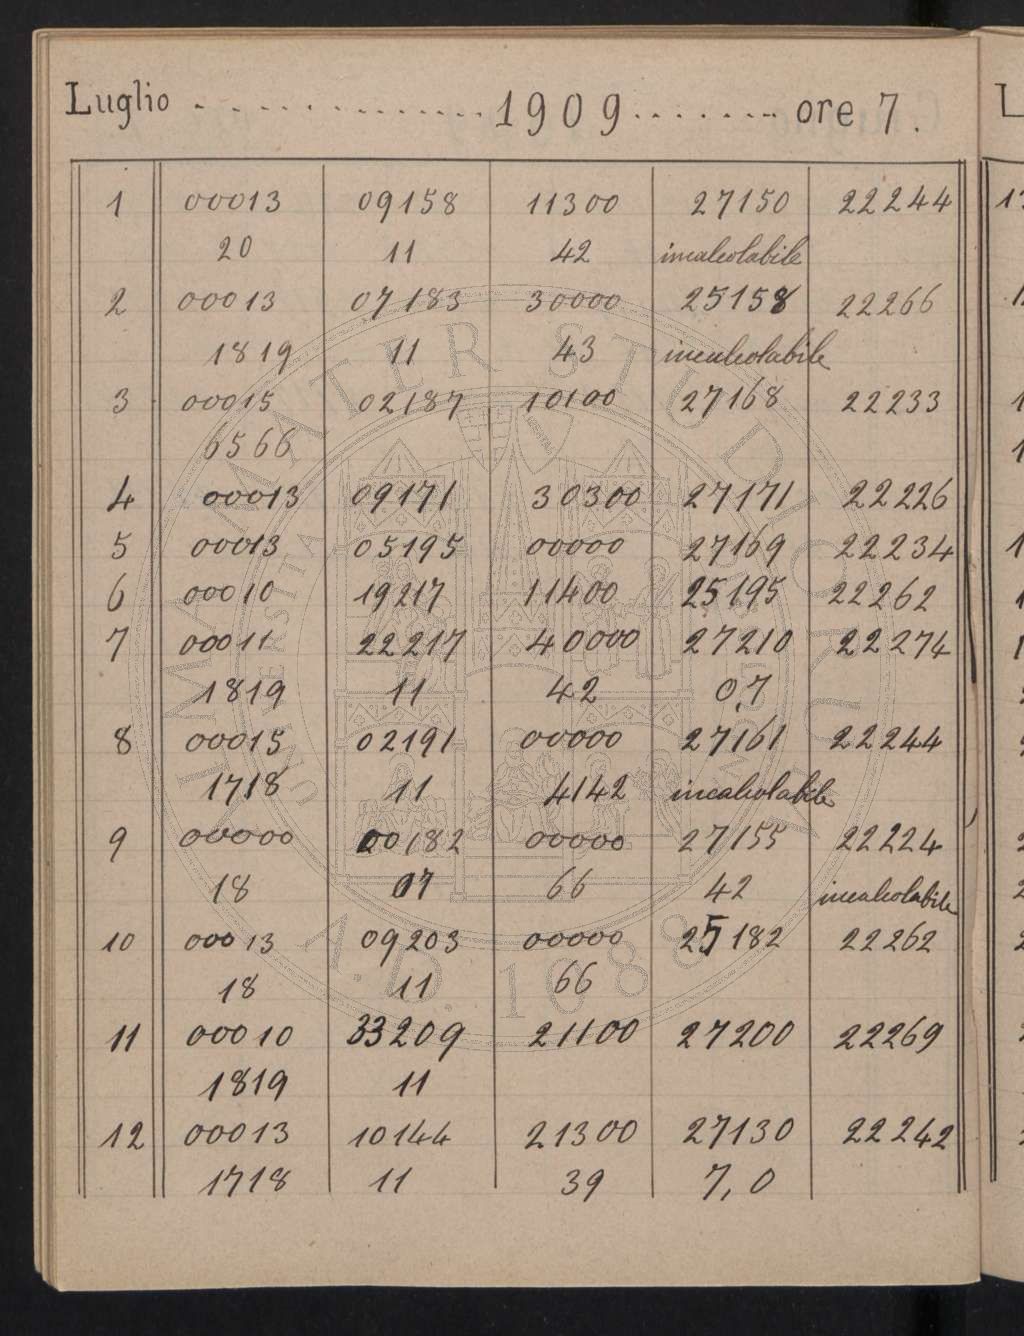 Luglio . . . . . . . . . . . . . . 1909 . . . . . . . . ore 7.
1 00013 09158 11300 27150 22244
20 11 42 incalcolabile
2 00013 07183 30000 25158 22266
1819 11 43 incalcolabile
3 00015 02187 10100 27168 22233
6566
4 00013 09171 30300 27171 22226
5 00013 05195 00000 27169 22234
6 00010 19217 11400 25195 22262
7 00011 22217 40000 27210 22274
1819 11 42 0,7
8 00015 02191 00000 27161 22244
1718 11 4142 incalcolabile
9 00000 00182 00000 27155 22224
18 07 66 42 incalcolabile
10 00013 09203 00000 25182 22262
18 11 66
11 00010 33209 21100 27200 22269
1819 11
12 00013 10144 21300 27130 22242
1718 11 39 7,0
ALMA MATER STUDIORUM
A.D. 1088